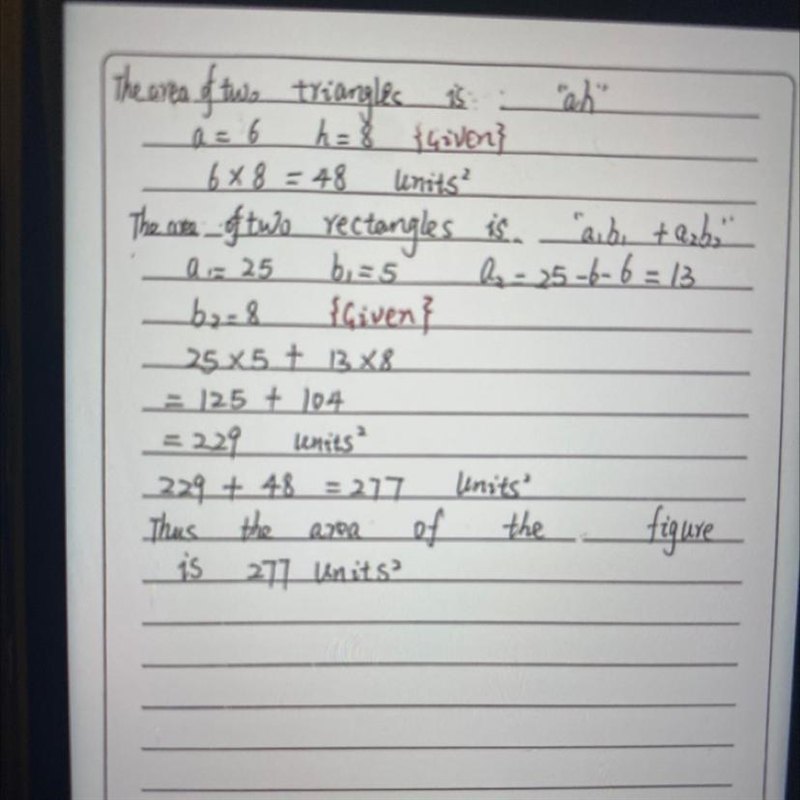 The area of two triangles is: "ah"
a = 6 h = 8 {Given}
6 × 8 = 48 Units²
The area of two rectangles is. "a₁b₁ + a₂b₂"
a₁ = 25 b₁ = 5 a₂ = 25 - 6 - 6 = 13
b₂ = 8 {Given}
25 × 5 + 13 × 8
= 125 + 104
= 229 units²
229 + 48 = 277 Units²
Thus the area of the figure
is 277 Units²